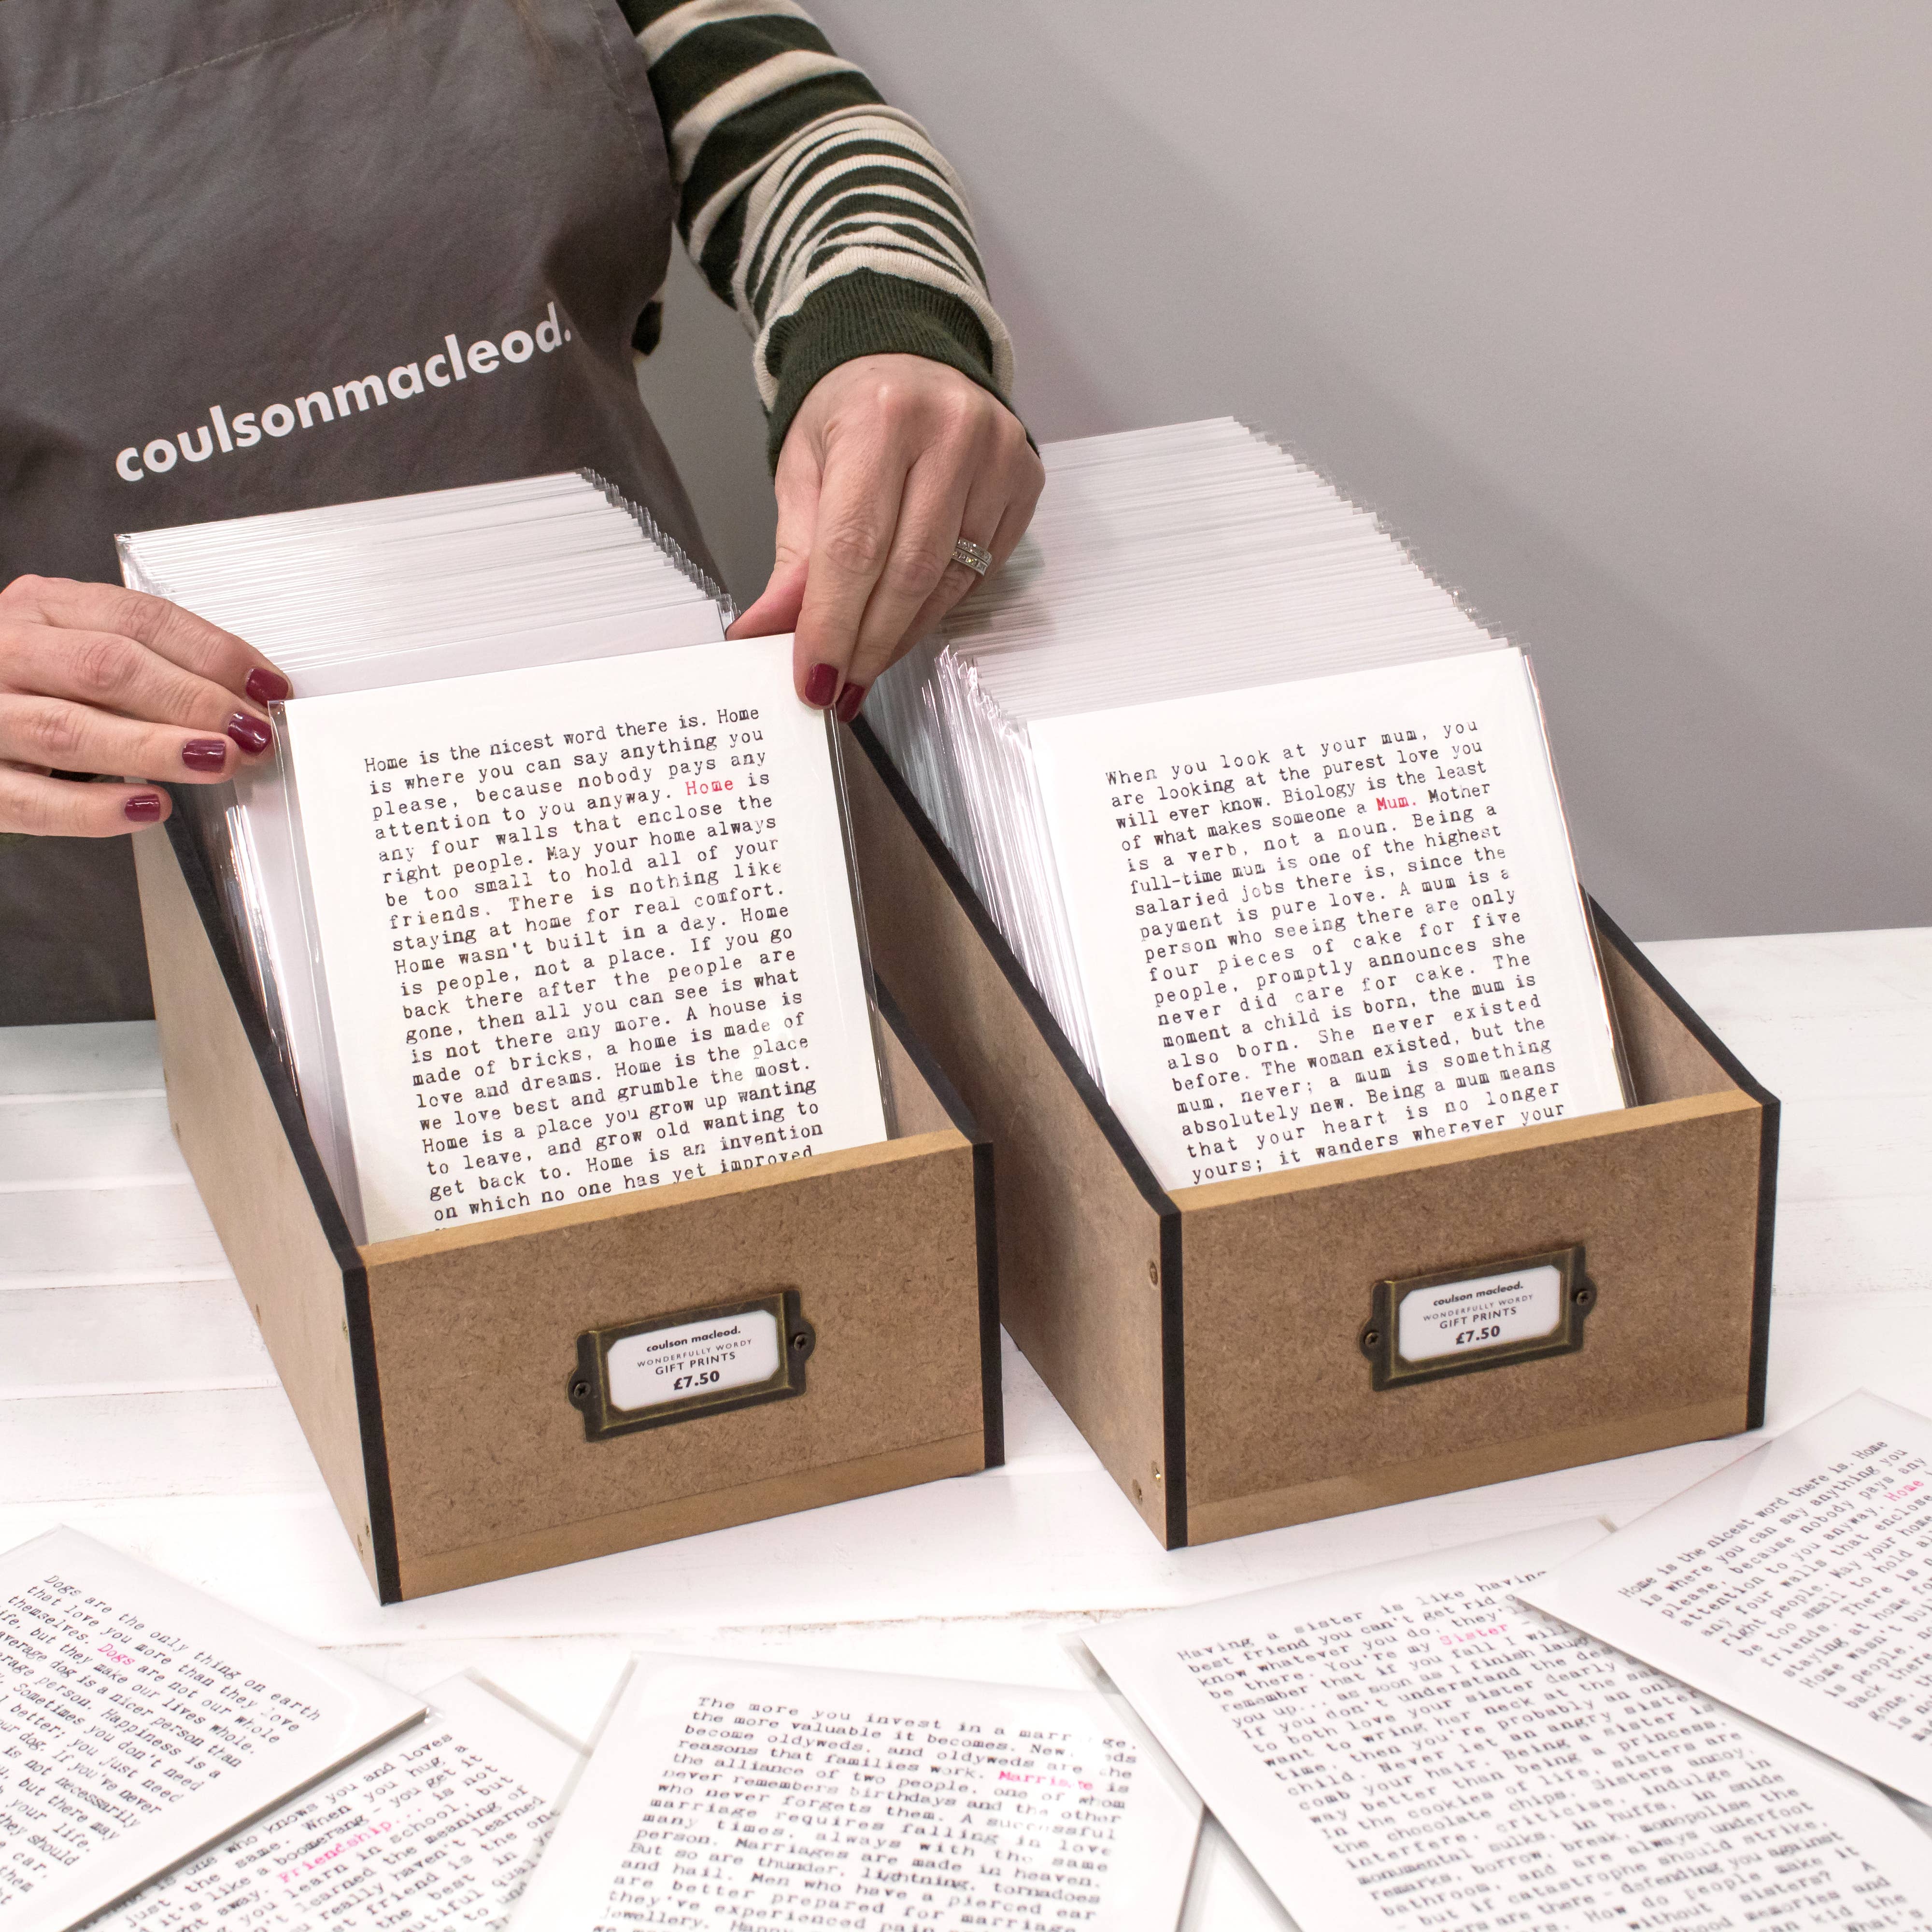 coulsonmacleod.
Home is the nicest word there is. Home
is where you can say anything you
please, because nobody pays any
attention to you anyway. Home is
any four walls that enclose the
right people. May your home always
be too small to hold all of your
friends. There is nothing like
staying at home for real comfort.
Home wasn't built in a day. Home
is people, not a place. If you go
back there after the people are
gone, then all you can see is what
is not there any more. A house is
made of bricks, a home is made of
love and dreams. Home is the place
we love best and grumble the most.
Home is a place you grow up wanting
to leave, and grow old wanting to
get back to. Home is an invention
on which no one has yet improved
When you look at your mum, you
are looking at the purest love you
will ever know. Biology is the least
of what makes someone a Mum. Mother
is a verb, not a noun. Being a
full-time mum is one of the highest
salaried jobs there is, since the
payment is pure love. A mum is a
person who seeing there are only
four pieces of cake for five
people, promptly announces she
never did care for cake. The
moment a child is born, the mum is
also born. She never existed
before. The woman existed, but the
mum, never; a mum is something
absolutely new. Being a mum means
that your heart is no longer
yours; it wanders wherever your
coulson macleod.
WONDERFULLY WORDY
GIFT PRINTS
£7.50
coulson macleod.
WONDERFULLY WORDY
GIFT PRINTS
£7.50
Dogs are the only thing on earth
that love you more than they love
themselves. Dogs are not our whole
life, but they make our lives whole.
average dog is a nicer person than
average person. Happiness is a
Sometimes you don't need
better; you just need
our dog. If you've never
is not necessarily
but there may
your life.
they should
car.
them
one who knows you and loves
just the same. When you hug a
it's like a boomerang - you get it
right away. Friendship... is not
you learn in school, but
learned the meaning of
you really haven't learned
friend is the one
the best in
The more you invest in a marriage,
the more valuable it becomes.
become oldyweds, and oldyweds are the
reasons that families work. Marriage is
the alliance of two people, one of whom
never remembers birthdays and the other
who never forgets them. A successful
marriage requires falling in love
many times, always with the same
person. Marriages are made in heaven.
But so are thunder, lightning, tornadoes
and hail. Men who have a pierced ear
are better prepared for marriage
they've experienced pain
jewellery.
Having a sister is like having
best friend you can't get rid
know whatever you do, they'll
be there. You're my Sister
remember that if you fall I will
you up... as soon as I finish laug
If you don't understand
to both love your sister dearly
want to wring her neck at the
time, then you're probably an only
child. Never let an angry sister
comb your hair. Being a sister is
way better than being a princess.
In the cookies of life, sisters are
the chocolate chips. Sisters annoy,
interfere, criticise, indulge in
monumental sulks, in huffs, in snide
remarks, borrow, break, monopolise the
bathroom, and are always underfoot
- but if catastrophe should strike,
are there - defending you against
How do people make it
without sisters? A
memories and
Home is the nicest word there is. Home
is where you can say anything you
please, because nobody pays any
attention to you anyway. Home
any four walls that enclose
right people. May your home
be too small to hold
friends. There is
staying at home
Home wasn't
is people,
back
gone,